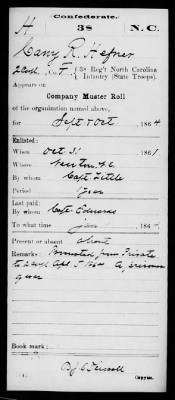 Confederate.
H 38 N.C.
Cany R. Hefner
2 Lieut, Co. F, 38 Reg't North Carolina
Infantry (State Troops).
Appears on
Company Muster Roll
of the organization named above,
for Sept & Oct, 1864
Enlisted:
When Oct 31, 1861
Where Newton N.C.
By whom Capt
Period 1 year
Last paid:
By whom Capt. Edwards
To what time Jan, 1864
Present or absent absent
Remarks: Promoted from Private
to 2 Lieut Apl A prisoner
of war
Book mark:
Copyist.